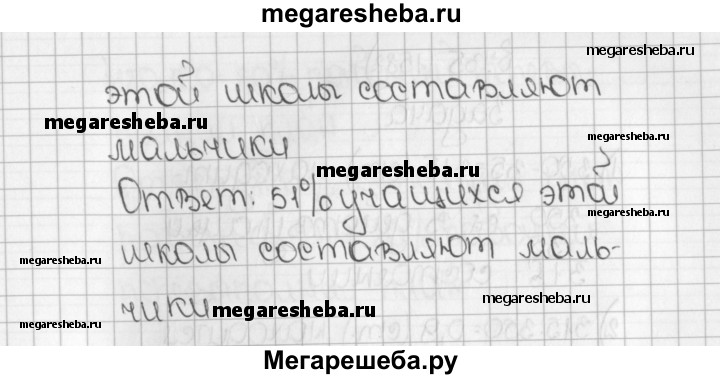 megaresheba.ru
megaresheba.ru
этой школы составляют
megaresheba.ru
megaresheba.ru
мальчики
megaresheba.ru
Ответ: 51% учащихся этой
megaresheba.ru
megaresheba.ru
школы составляют маль-
megaresheba.ru
чики
megaresheba.ru
megaresheba.ru
megaresheba.ru
Мегарешеба.ру